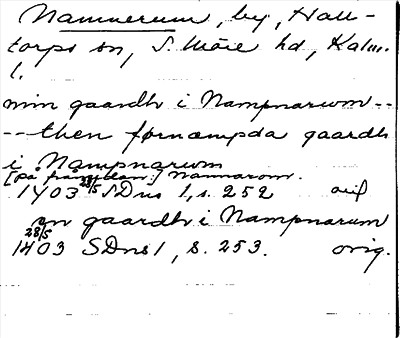 Namnerum, by, Hall-
torps sn, S. Möre hd, Kalm.
l.
min gaardh i Nampnarwm --
-- then fornæmpda gaardh
i Nampnarwm
[på frånsidan:] Nannarom.
1403 28/5 SDns 1, s. 252 orig
en gaardh i Nampnarum
1403 28/5 SDns 1, s. 253. orig.